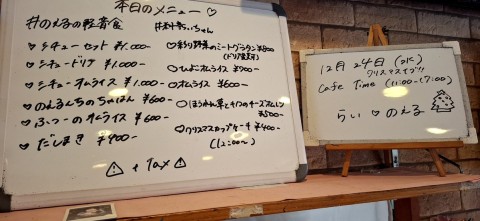 本日のメニュー ♡
#のえるの軽音食
♡シチューセット ¥1,000-
♡シチュードリア ¥1,000-
♡シチューオムライス ¥1,000-
♡のえるんちのちゃはん ¥600-
♡ふつーのオムライス ¥600-
♡だしまき ¥400-
♡彩り野菜のミートグラタン ¥800
(ドリア変更可)
♡ひよこオムライス ¥900-
♡オムライス ¥600-
♡ほうれん草とキノコのチーズオムレツ
¥500-
♡クリスマスカップケーキ ¥400-
(12:00〜)
⚠ + Tax ⚠
12月24日(水)
クリスマスイブ!!
Cafe Time (11:00-17:00)
らい ♡ のえる